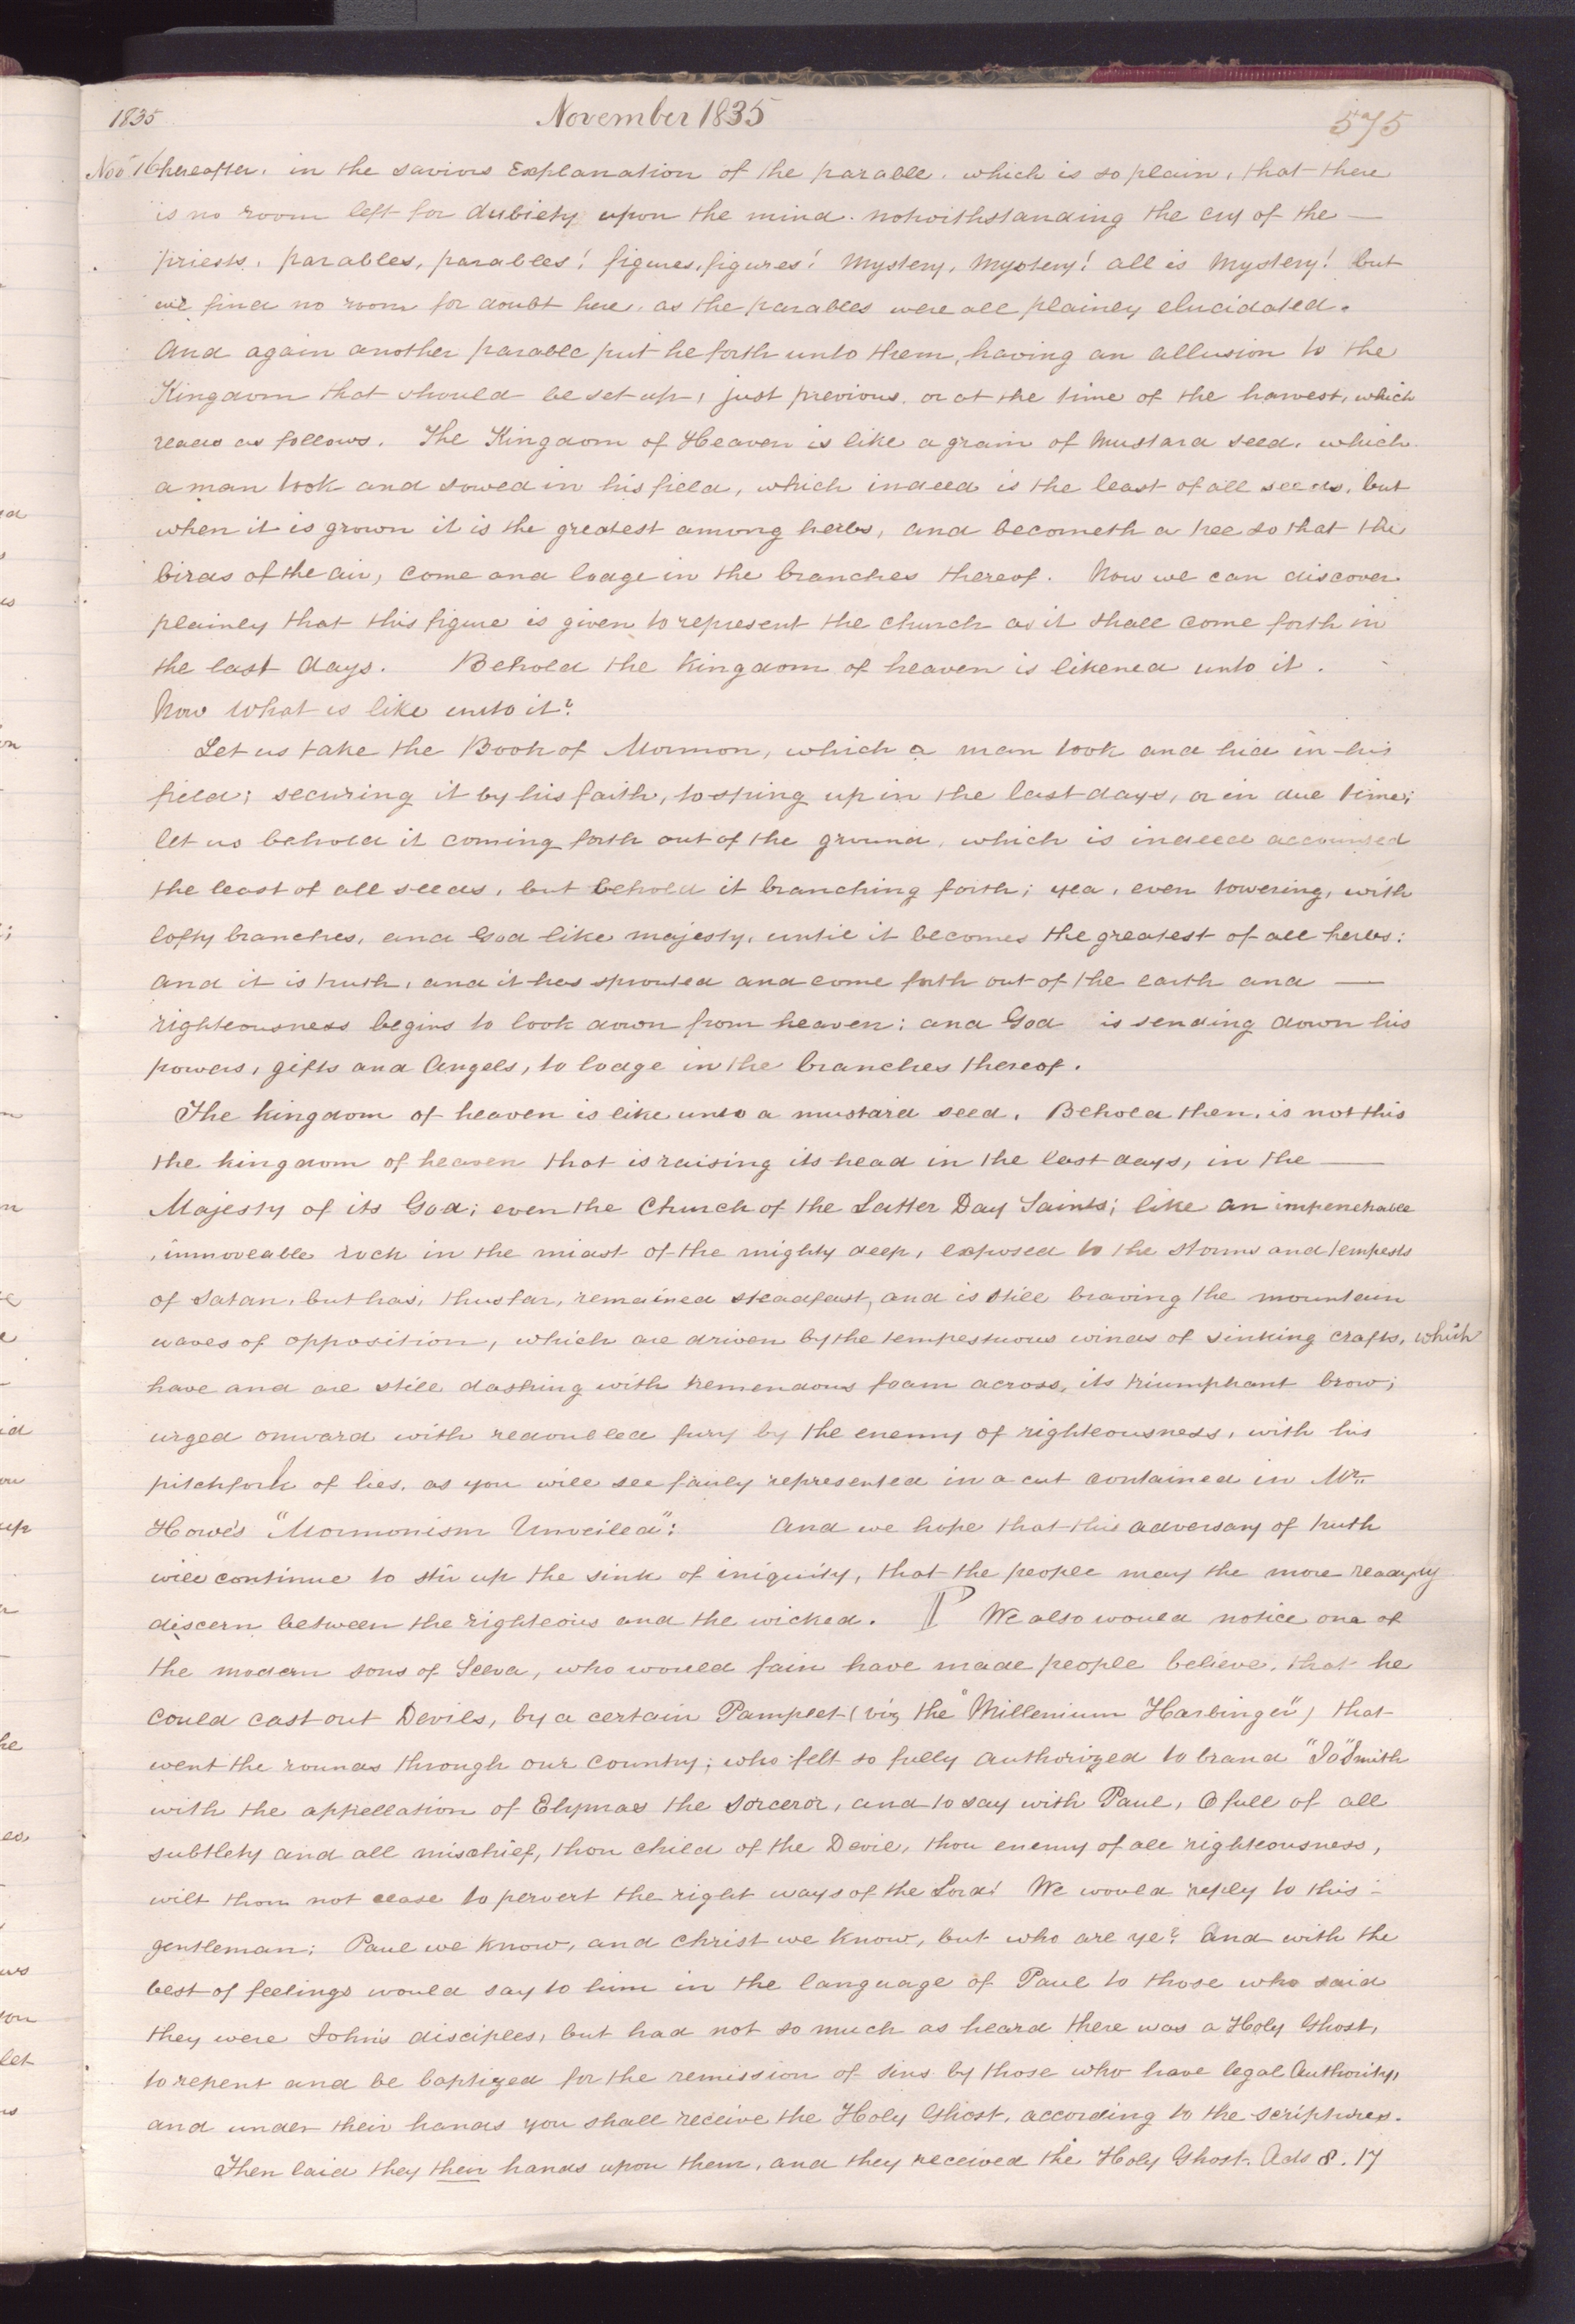 1835 November 1835 575
Nov 16 hereafter. in the saviors Explanation of the parable. which is so plain, that there
is no room left for dubiety upon the mind. notwithstanding the cry of the —
priests. parables, parables! figures, figures! Mystery, Mystery! all is Mystery! but
we find no room for doubt here, as the parables were all plainley elucidated.
And again another parable put he forth unto them, having an allusion to the
Kingdom that should be set up, just previous. or at the time of the harvest, which
reads as follows. The Kingdom of Heaven is like a grain of Mustard seed. which
a man took and sowed in his field, which indeed is the least of all seeds, but
when it is grown it is the greatest among herbs, and becometh a tree so that the
birds of the air, come and lodge in the branches thereof. Now we can discover
plainley that this figure is given to represent the church as it shall come forth in
the last days. Behold the Kingdom of heaven is likened unto it.
Now what is like unto it?
Let us take the Book of Mormon, which a man took and hid in his
field; securing it by his faith, to spring up in the last days, or in due time;
let us behold it coming forth out of the ground, which is indeed accounted
the least of all seeds, but behold it branching forth; yea, even towering, with
lofty branches, and God like majesty, until it becomes the greatest of all herbs:
and it is truth, and it has sprouted and come forth out of the earth and —
righteousness begins to look down from heaven; and God is sending down his
powers, gifts and Angels, to lodge in the branches thereof.
The kingdom of heaven is like unto a mustard seed. Behold then, is not this
the kingdom of heaven that is raising its head in the last days, in the —
Majesty of its God; even the Church of the Latter Day Saints; like an impenetrable
, immoveable rock in the midst of the mighty deep, exposed to the storms and tempests
of Satan, but has, thus far, remained steadfast, and is still braving the mountain
waves of opposition, which are driven by the tempestuous winds of sinking crafts, which
have and are still dashing with tremendous foam across, its triumphant brow;
urged onward with redoubled fury by the enemy of righteousness, with his
pitchfork of lies, as you will see fairly represented in a cut contained in Mr.
Howe's "Mormonism Unveiled": And we hope that this adversary of truth
will continue to stir up the sink of iniquity, that the people may the more readyly
discern between the righteous and the wicked. ¶ We also would notice one of
the modern sons of Sceva, who would fain have made people believe, that he
could cast out Devils, by a certain Pamplet (viz the "Millenium Harbinger") that
went the rounds through our country; who felt so fully authorized to brand "Jo" Smith
with the appellation of Elymas the sorceror, and to say with Paul, O full of all
subtlety and all mischief, thou child of the Devil, thou enemy of all righteousness,
wilt thou not cease to pervert the right ways of the Lord! We would reply to this
gentleman; Paul we know, and Christ we know, but who are ye? And with the
best of feelings would say to him in the language of Paul to those who said
they were John's disciples, but had not so much as heard there was a Holy Ghost,
to repent and be baptized for the remission of sins by those who have legal Authority,
and under their hands you shall receive the Holy Ghost, according to the scriptures.
Then laid they their hands upon them, and they received the Holy Ghost. Acts 8. 17